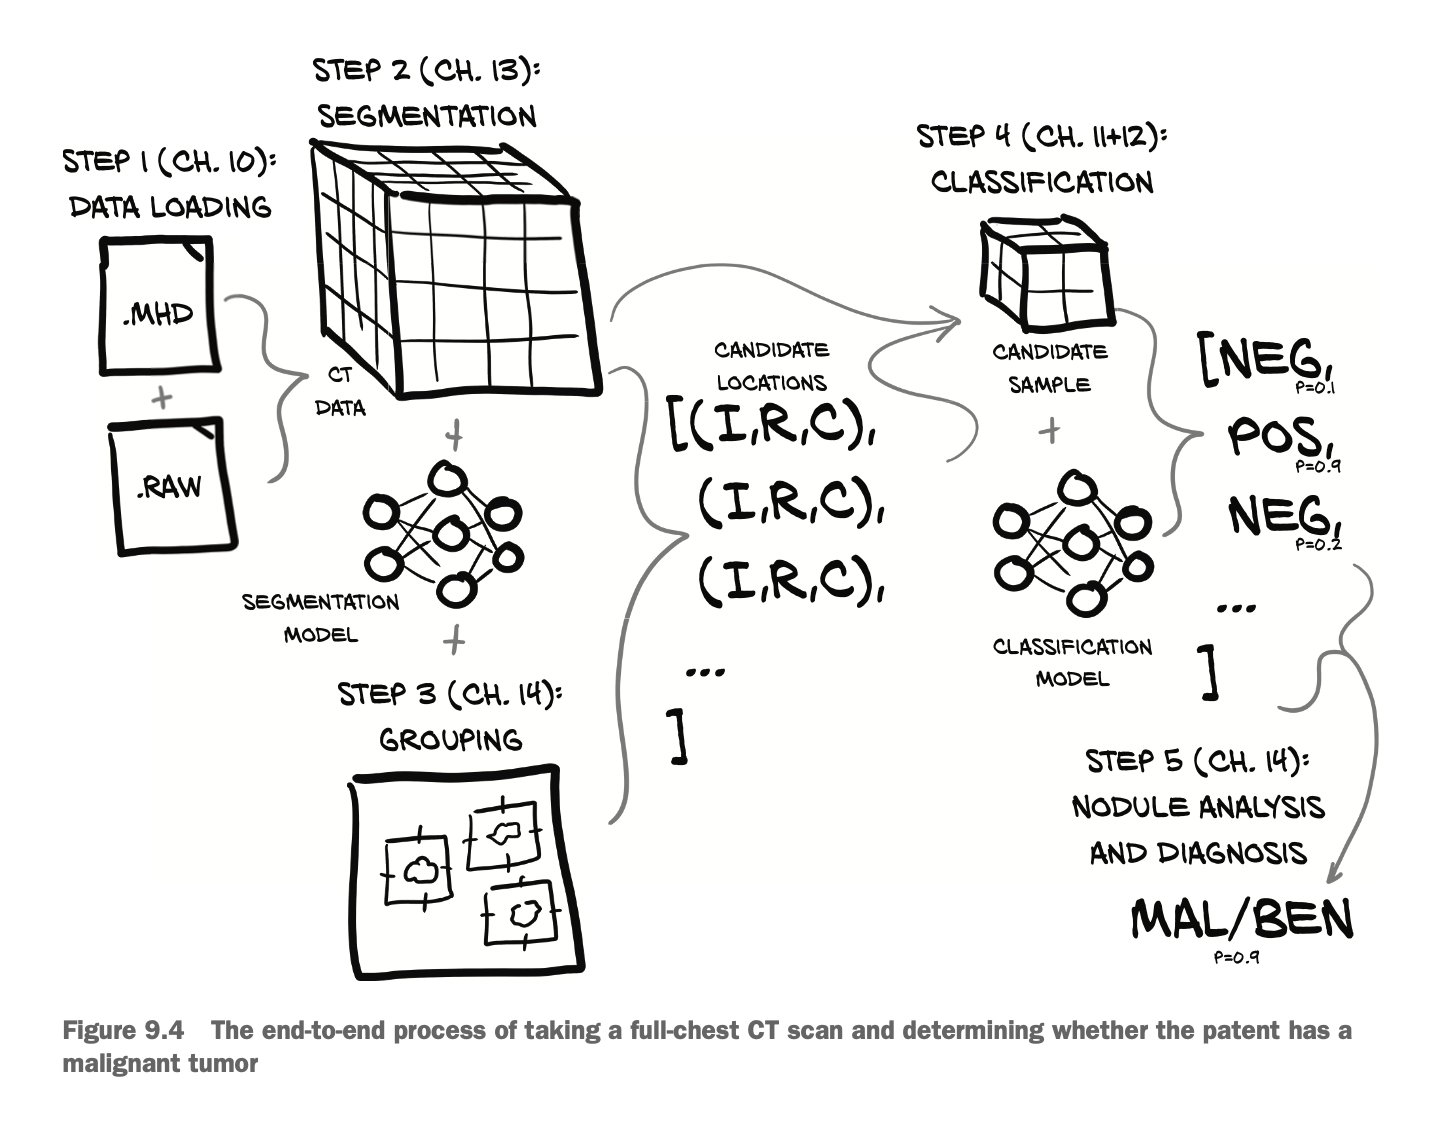 STEP 1 (CH. 10):
DATA LOADING
.MHD
+
.RAW
STEP 2 (CH. 13):
SEGMENTATION
CT
DATA
+
SEGMENTATION
MODEL
+
STEP 3 (CH. 14):
GROUPING
CANDIDATE
LOCATIONS
[(I,R,C),
(I,R,C),
(I,R,C),
...
]
STEP 4 (CH. 11+12):
CLASSIFICATION
CANDIDATE
SAMPLE
+
CLASSIFICATION
MODEL
[NEG,
P=0.1
POS,
P=0.9
NEG,
P=0.2
...
]
STEP 5 (CH. 14):
NODULE ANALYSIS
AND DIAGNOSIS
MAL/BEN
P=0.9
Figure 9.4 The end-to-end process of taking a full-chest CT scan and determining whether the patent has a
malignant tumor